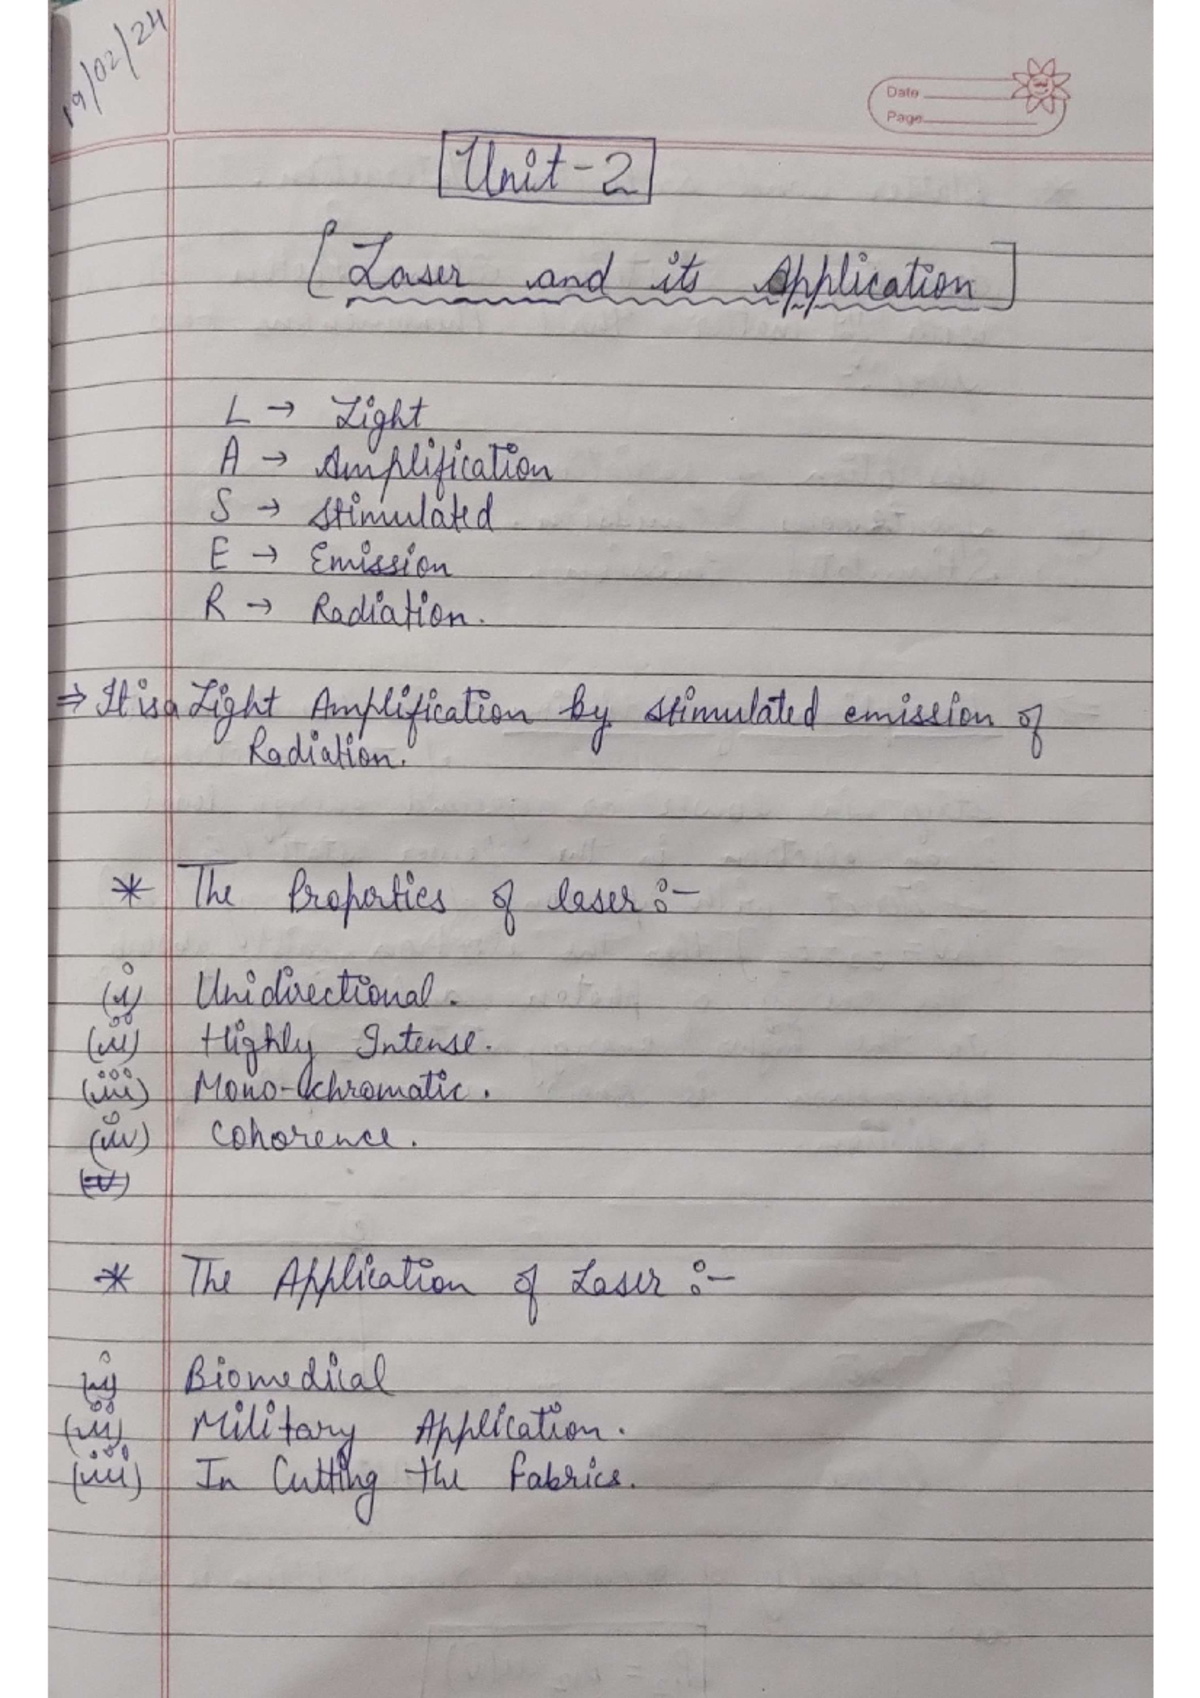 19/02/24
Date
Page
Unit-2
[Laser and its Application]
L → Light
A → Amplification
S → Stimulated
E → Emission
R → Radiation.
⇒ It is a Light Amplification by stimulated emission of
Radiation.
* The Properties of laser :-
(i) Unidirectional.
(ii) Highly Intense.
(iii) Mono-chromatic.
(iv) Cohorence.
(v)
* The Application of Laser :-
(i) Biomedical
(ii) Military Application.
(iii) In Cutting the fabrics.